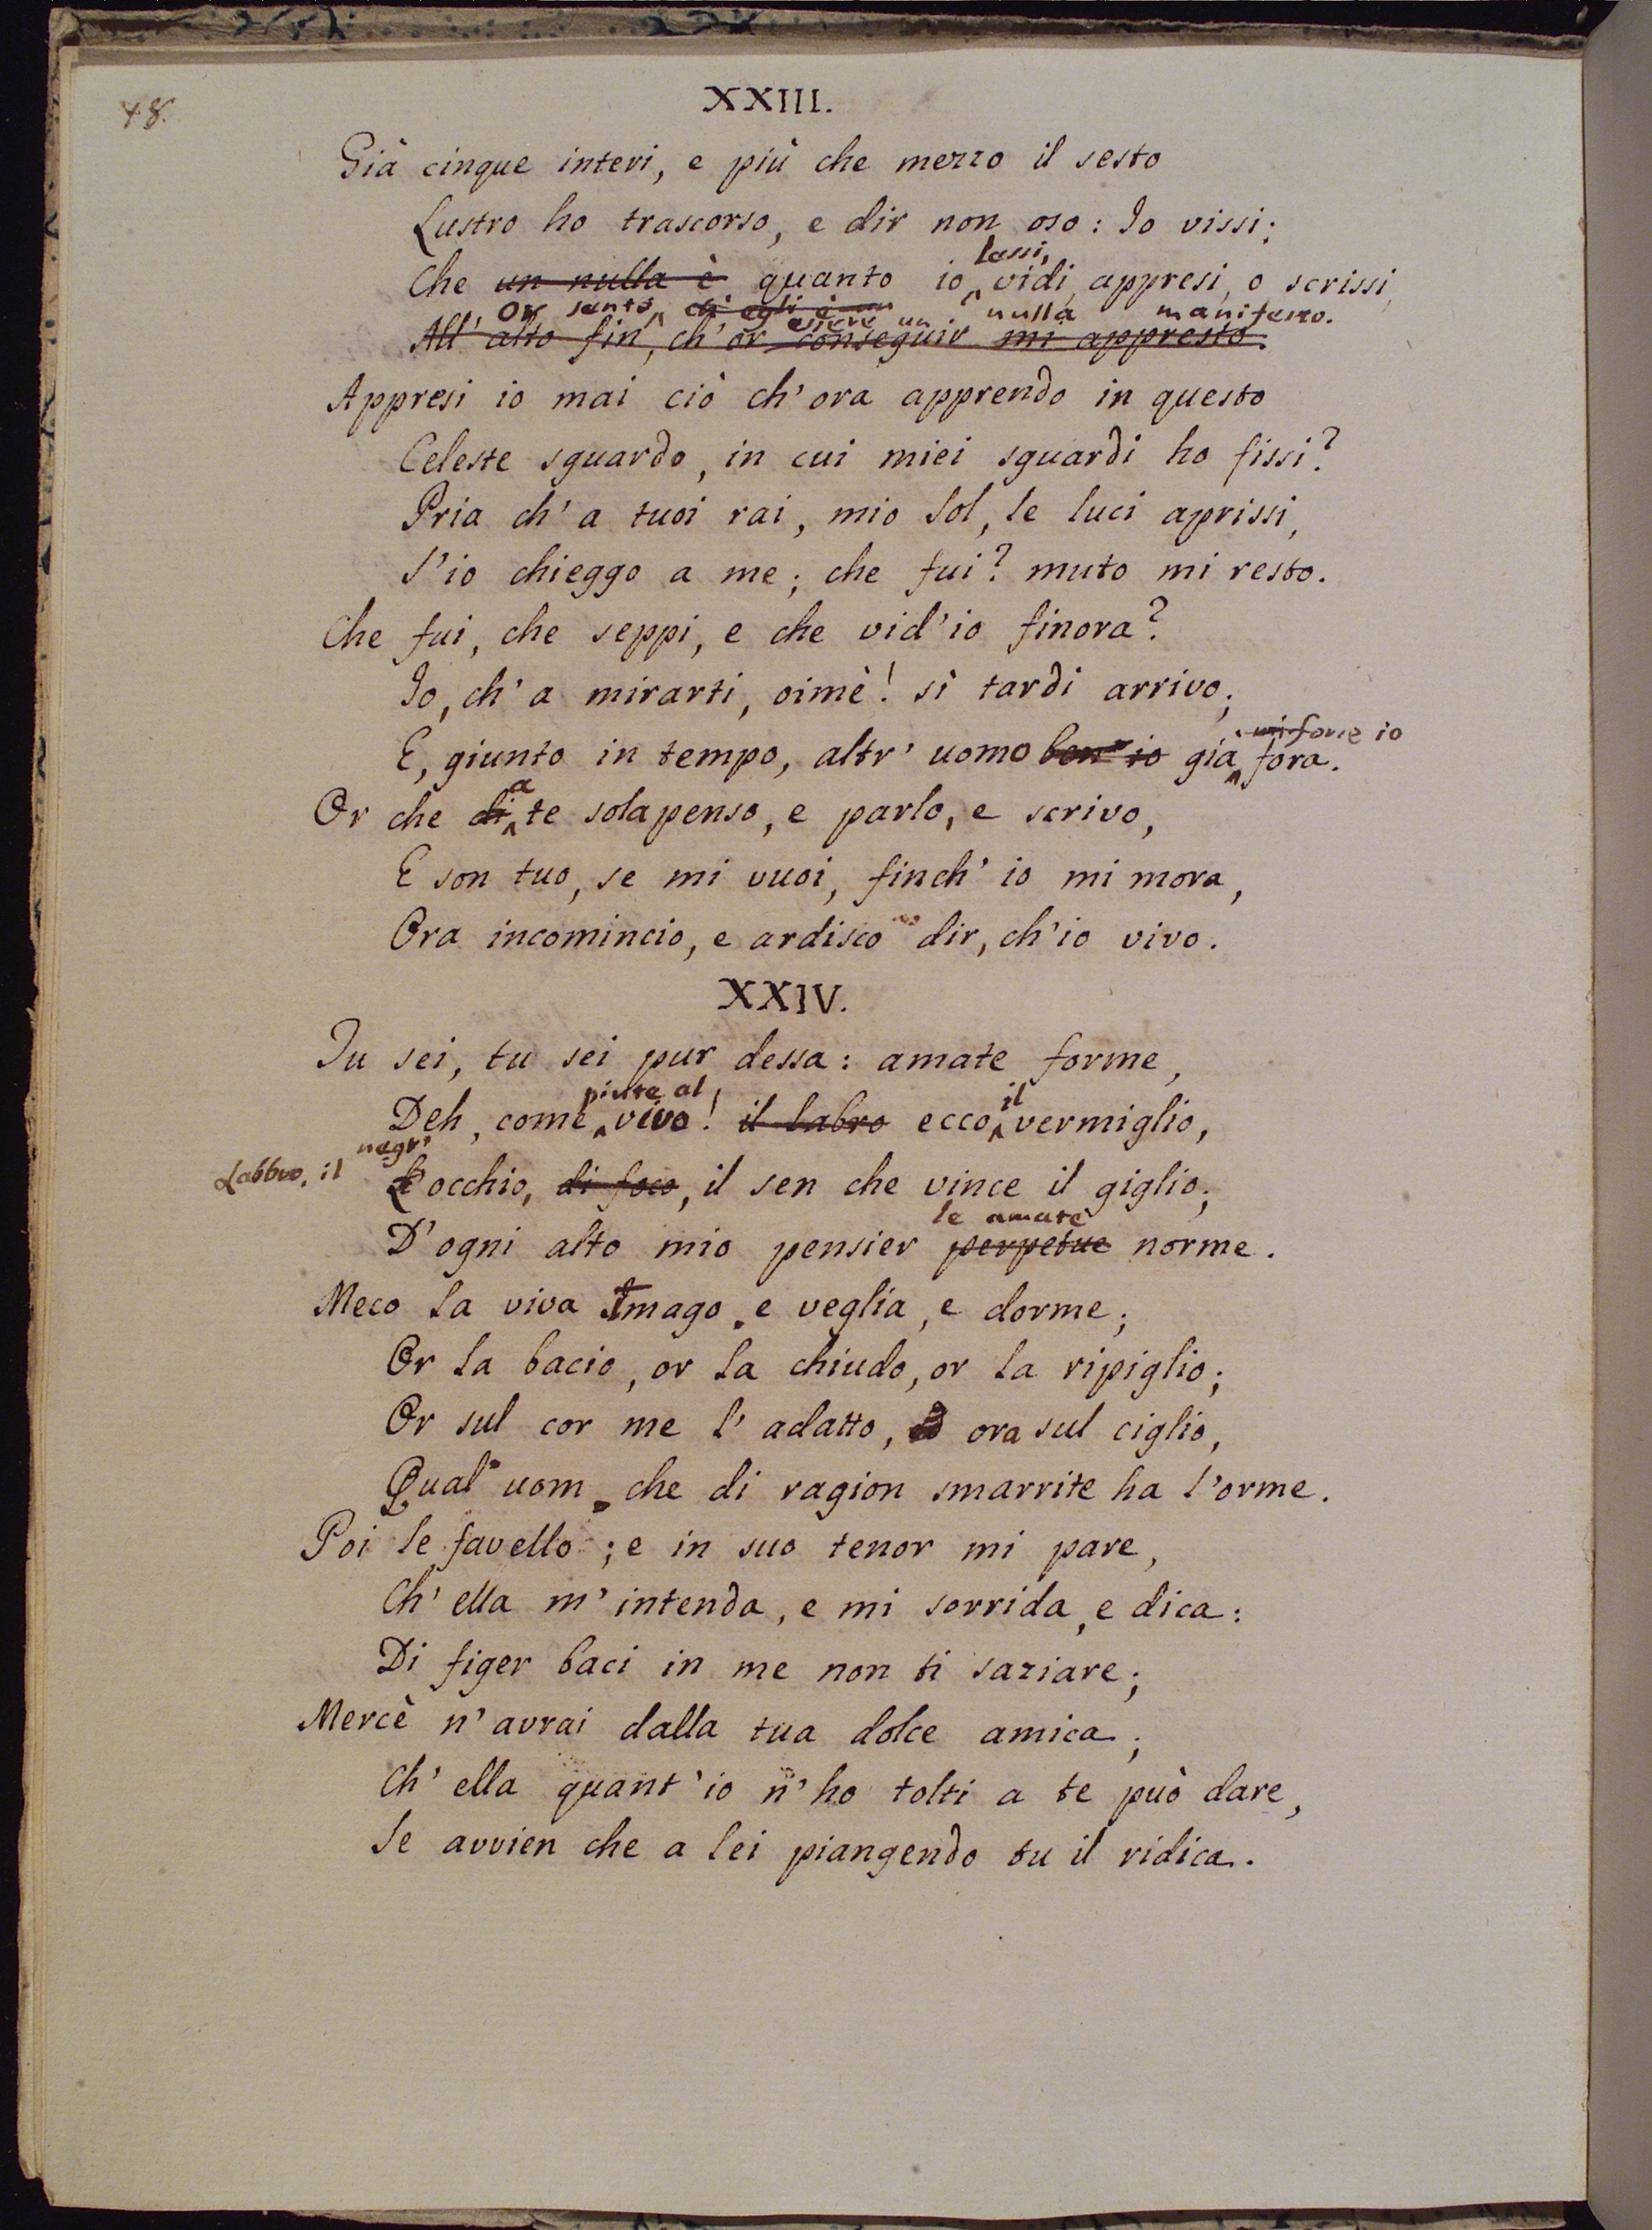 48.
XXIII.
Già cinque interi, e più che mezzo il sesto
Lustro ho trascorso, e dir non oso: Io vissi;
lessi,
Che un nulla è quanto io vidi, appresi, o scrissi,
Or sento, ch' egli è un
essere un nulla manifesto.
All' alto fin, ch' or conseguir mi appresto.
Appresi io mai ciò ch' ora apprendo in questo
Celeste sguardo, in cui miei sguardi ho fissi?
Pria ch' a tuoi rai, mio Sol, le luci aprissi,
S'io chieggo a me; che fui? muto mi resto.
Che fui, che seppi, e che vid'io finora?
Io, ch' a mirarti, oimè! sì tardi arrivo;
forse io
E, giunto in tempo, altr' uomo ben io già fora.
a
Or che di te sola penso, e parlo, e scrivo,
E son tuo, se mi vuoi, finch' io mi mora,
Ora incomincio, e ardisco dir, ch'io vivo.
XXIV.
Tu sei, tu sei pur dessa: amate forme,
pinte al il
Deh, come vivo! il labro ecco vermiglio,
Labbro, il negr'
L'occhio, di foco, il sen che vince il giglio;
le amate
D'ogni alto mio pensier perpetue norme.
Meco la viva Imago e veglia, e dorme;
Or la bacio, or la chiudo, or la ripiglio;
Or sul cor me l' adatto, ora sul ciglio,
Qual uom che di ragion smarrite ha l'orme.
Poi le favello; e in suo tenor mi pare,
Ch' ella m' intenda, e mi sorrida, e dica:
Di figer baci in me non ti saziare;
Mercè n' avrai dalla tua dolce amica;
Ch' ella quant' io n' ho tolti a te può dare,
Se avvien che a lei piangendo tu il ridica.